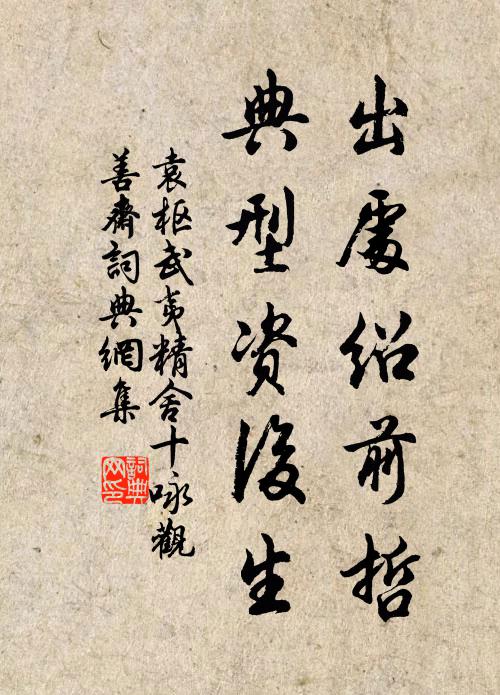 出處紹前哲
典型資後生
袁枢武夷精舍十咏觀
善齋詞典網集
詞典
网印